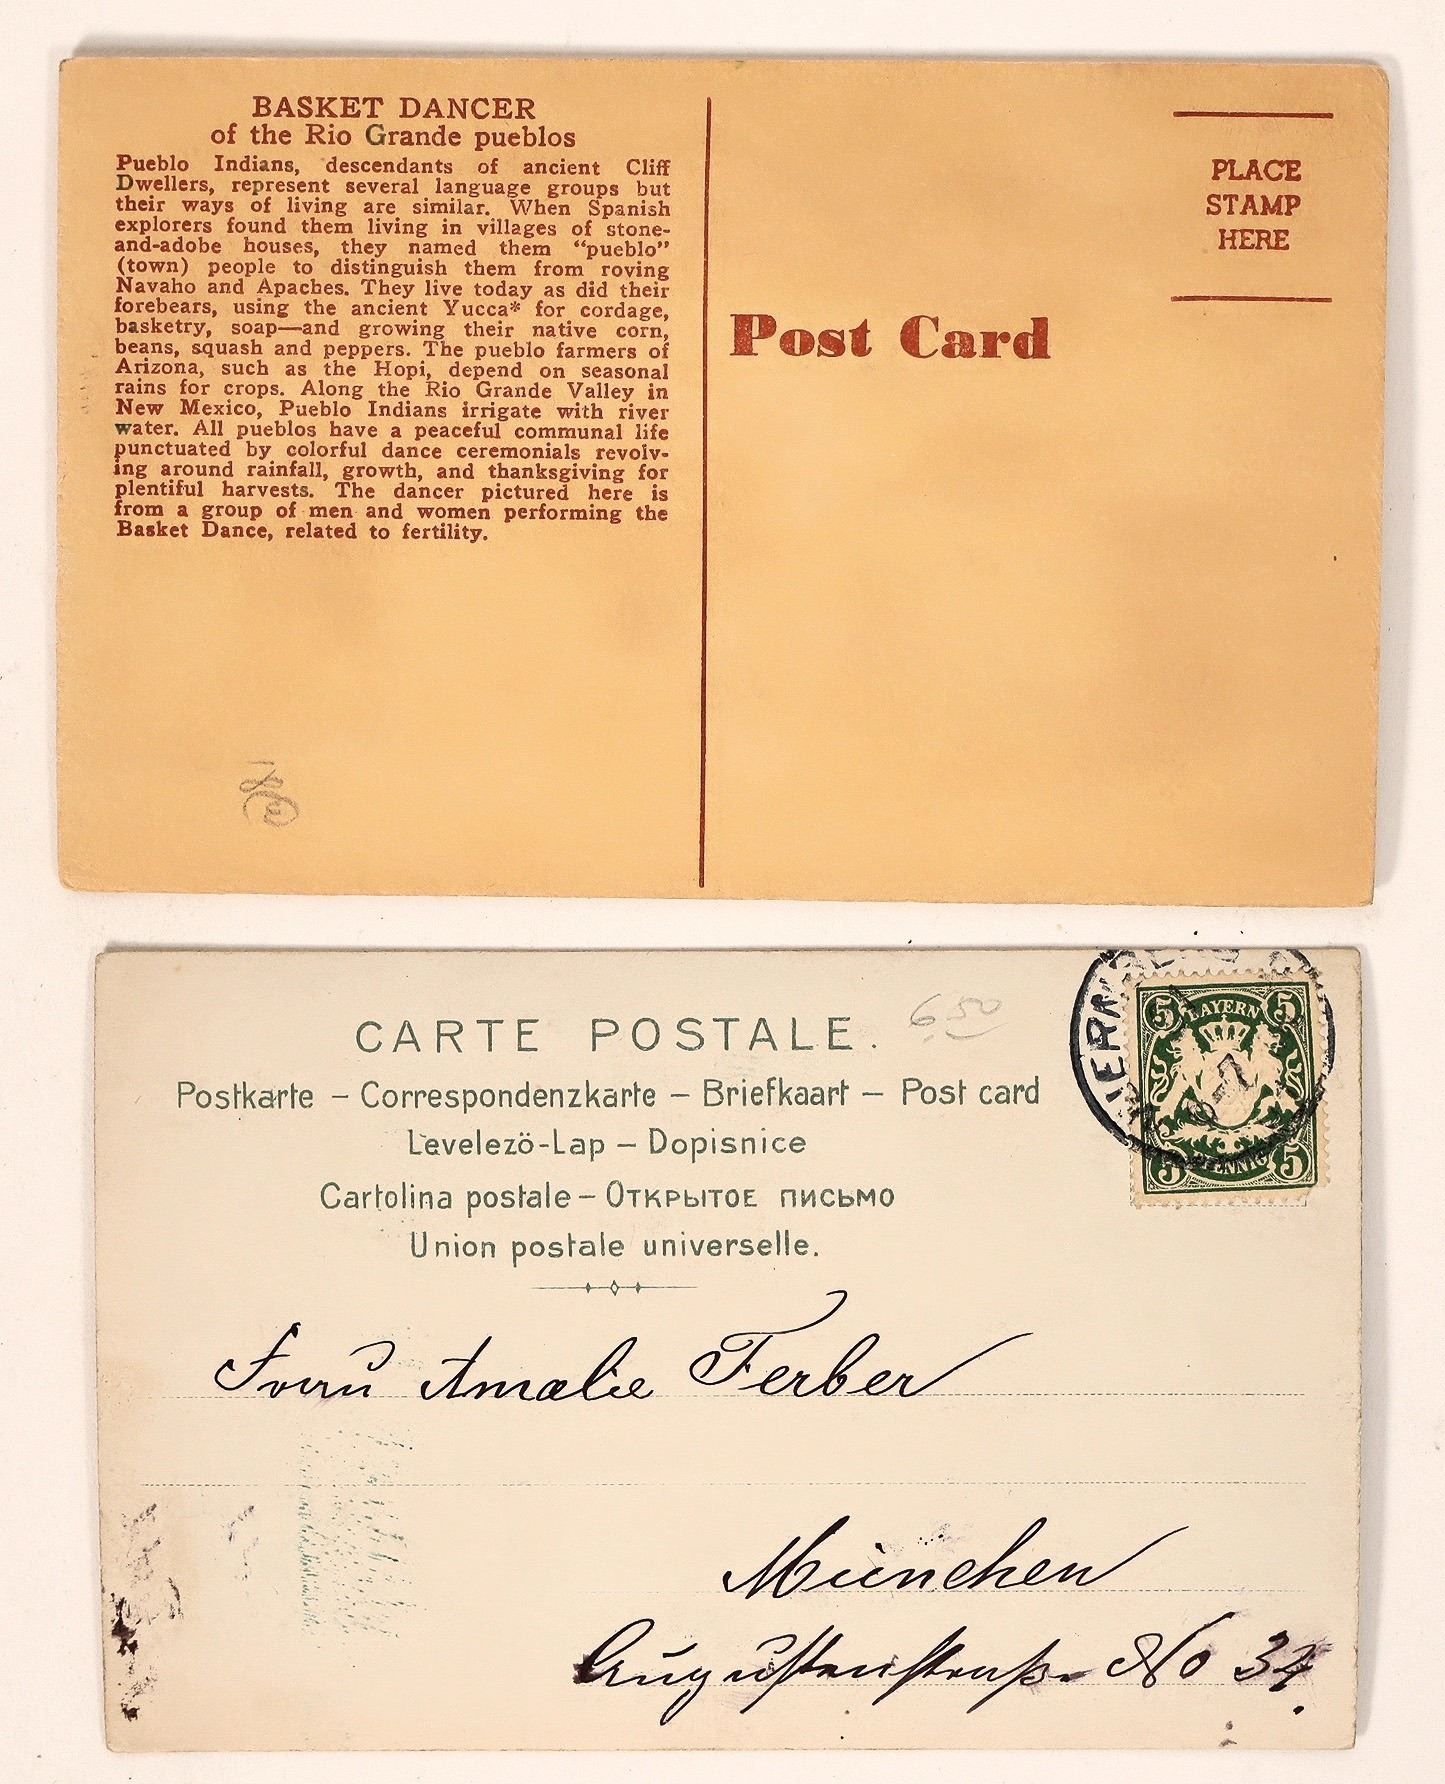 BASKET DANCER
of the Rio Grande pueblos
Pueblo Indians, descendants of ancient Cliff
Dwellers, represent several language groups but
their ways of living are similar. When Spanish
explorers found them living in villages of stone-
and-adobe houses, they named them “pueblo”
(town) people to distinguish them from roving
Navaho and Apaches. They live today as did their
forebears, using the ancient Yucca* for cordage,
basketry, soap—and growing their native corn,
beans, squash and peppers. The pueblo farmers of
Arizona, such as the Hopi, depend on seasonal
rains for crops. Along the Rio Grande Valley in
New Mexico, Pueblo Indians irrigate with river
water. All pueblos have a peaceful communal life
punctuated by colorful dance ceremonials revolv-
ing around rainfall, growth, and thanksgiving for
plentiful harvests. The dancer pictured here is
from a group of men and women performing the
Basket Dance, related to fertility.
PLACE
STAMP
HERE
Post Card
CARTE POSTALE.
6 50
Postkarte – Correspondenzkarte – Briefkaart – Post card
Levelezö-Lap – Dopisnice
Cartolina postale – Открытое письмо
Union postale universelle.
5 BAYERN 5
5 PFENNIG 5
Frau Amalie Ferber
München
Augustenstraße No 34.